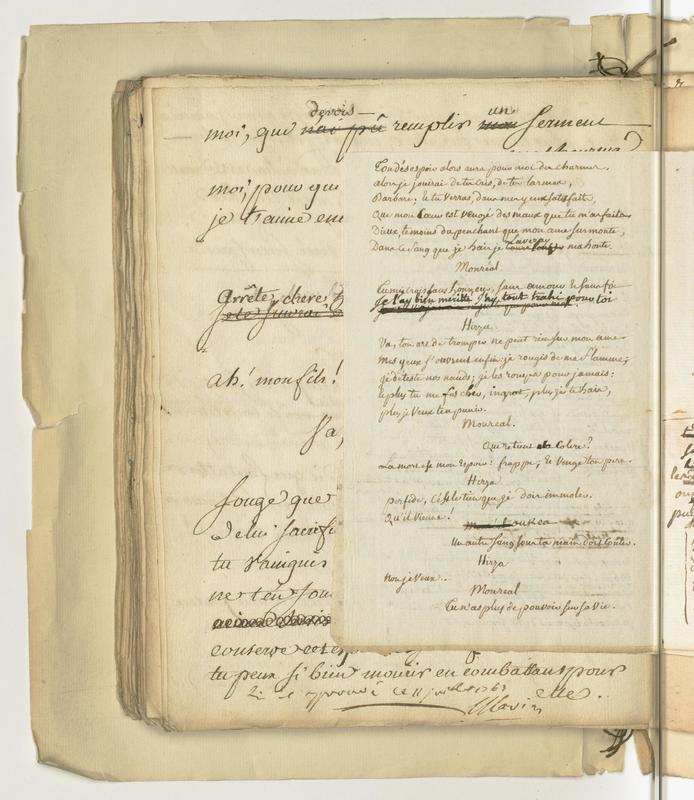 devois un
moi, que n'ai pû remplir mon serment
moi, pour que
je t'aime en
Arrête, chere
ah! mon fils!
Sa,
songe que
de lui sacrifi
tu vainques
ne t'en sou
conserve cet
tu peux si bien mourir en combattant pour
elle.
approuvé ce 11 1763
Marin
Ton désespoir alors aura pour moi des charmes.
alors je jouirai de tes cris, de tes larmes,
Barbare; et tu verras, dans mes yeux satisfaits,
Que mon Cœur est vengé des maux que tu m'as faits.
Dieux, temoins du penchant que mon ame surmonte,
Dans le sang que je hais je laverai ma honte.
Monréal
Tu me crois sans honneur, sans amour et sans foi
Je l'ay bien mérité, j'ay tout trahi pour toi
Hirza
Va, ton art de tromper ne peut rien sur mon ame.
Mes yeux s'ouvrent enfin; je rougis de ma flamme;
je déteste nos nœuds; je les romps pour jamais:
et plus tu me fus cher, ingrat, plus je te hais,
plus je veux te punir.
Monreal.
Qui retient ta Colere?
La mort est mon espoir: frappe, et venge ton pere.
Hirza
perfide, c'est le tien que je dois immoler.
Qu'il vienne!
Un autre sang sous ta main doit couler.
Hirza
Non je veux..
Monreal
Tu n'as plus de pouvoir sur sa vie.